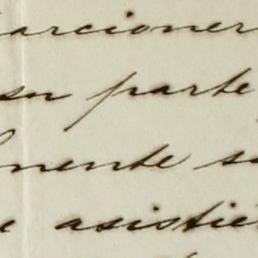 arcioner
su parte
mente se
e asistie